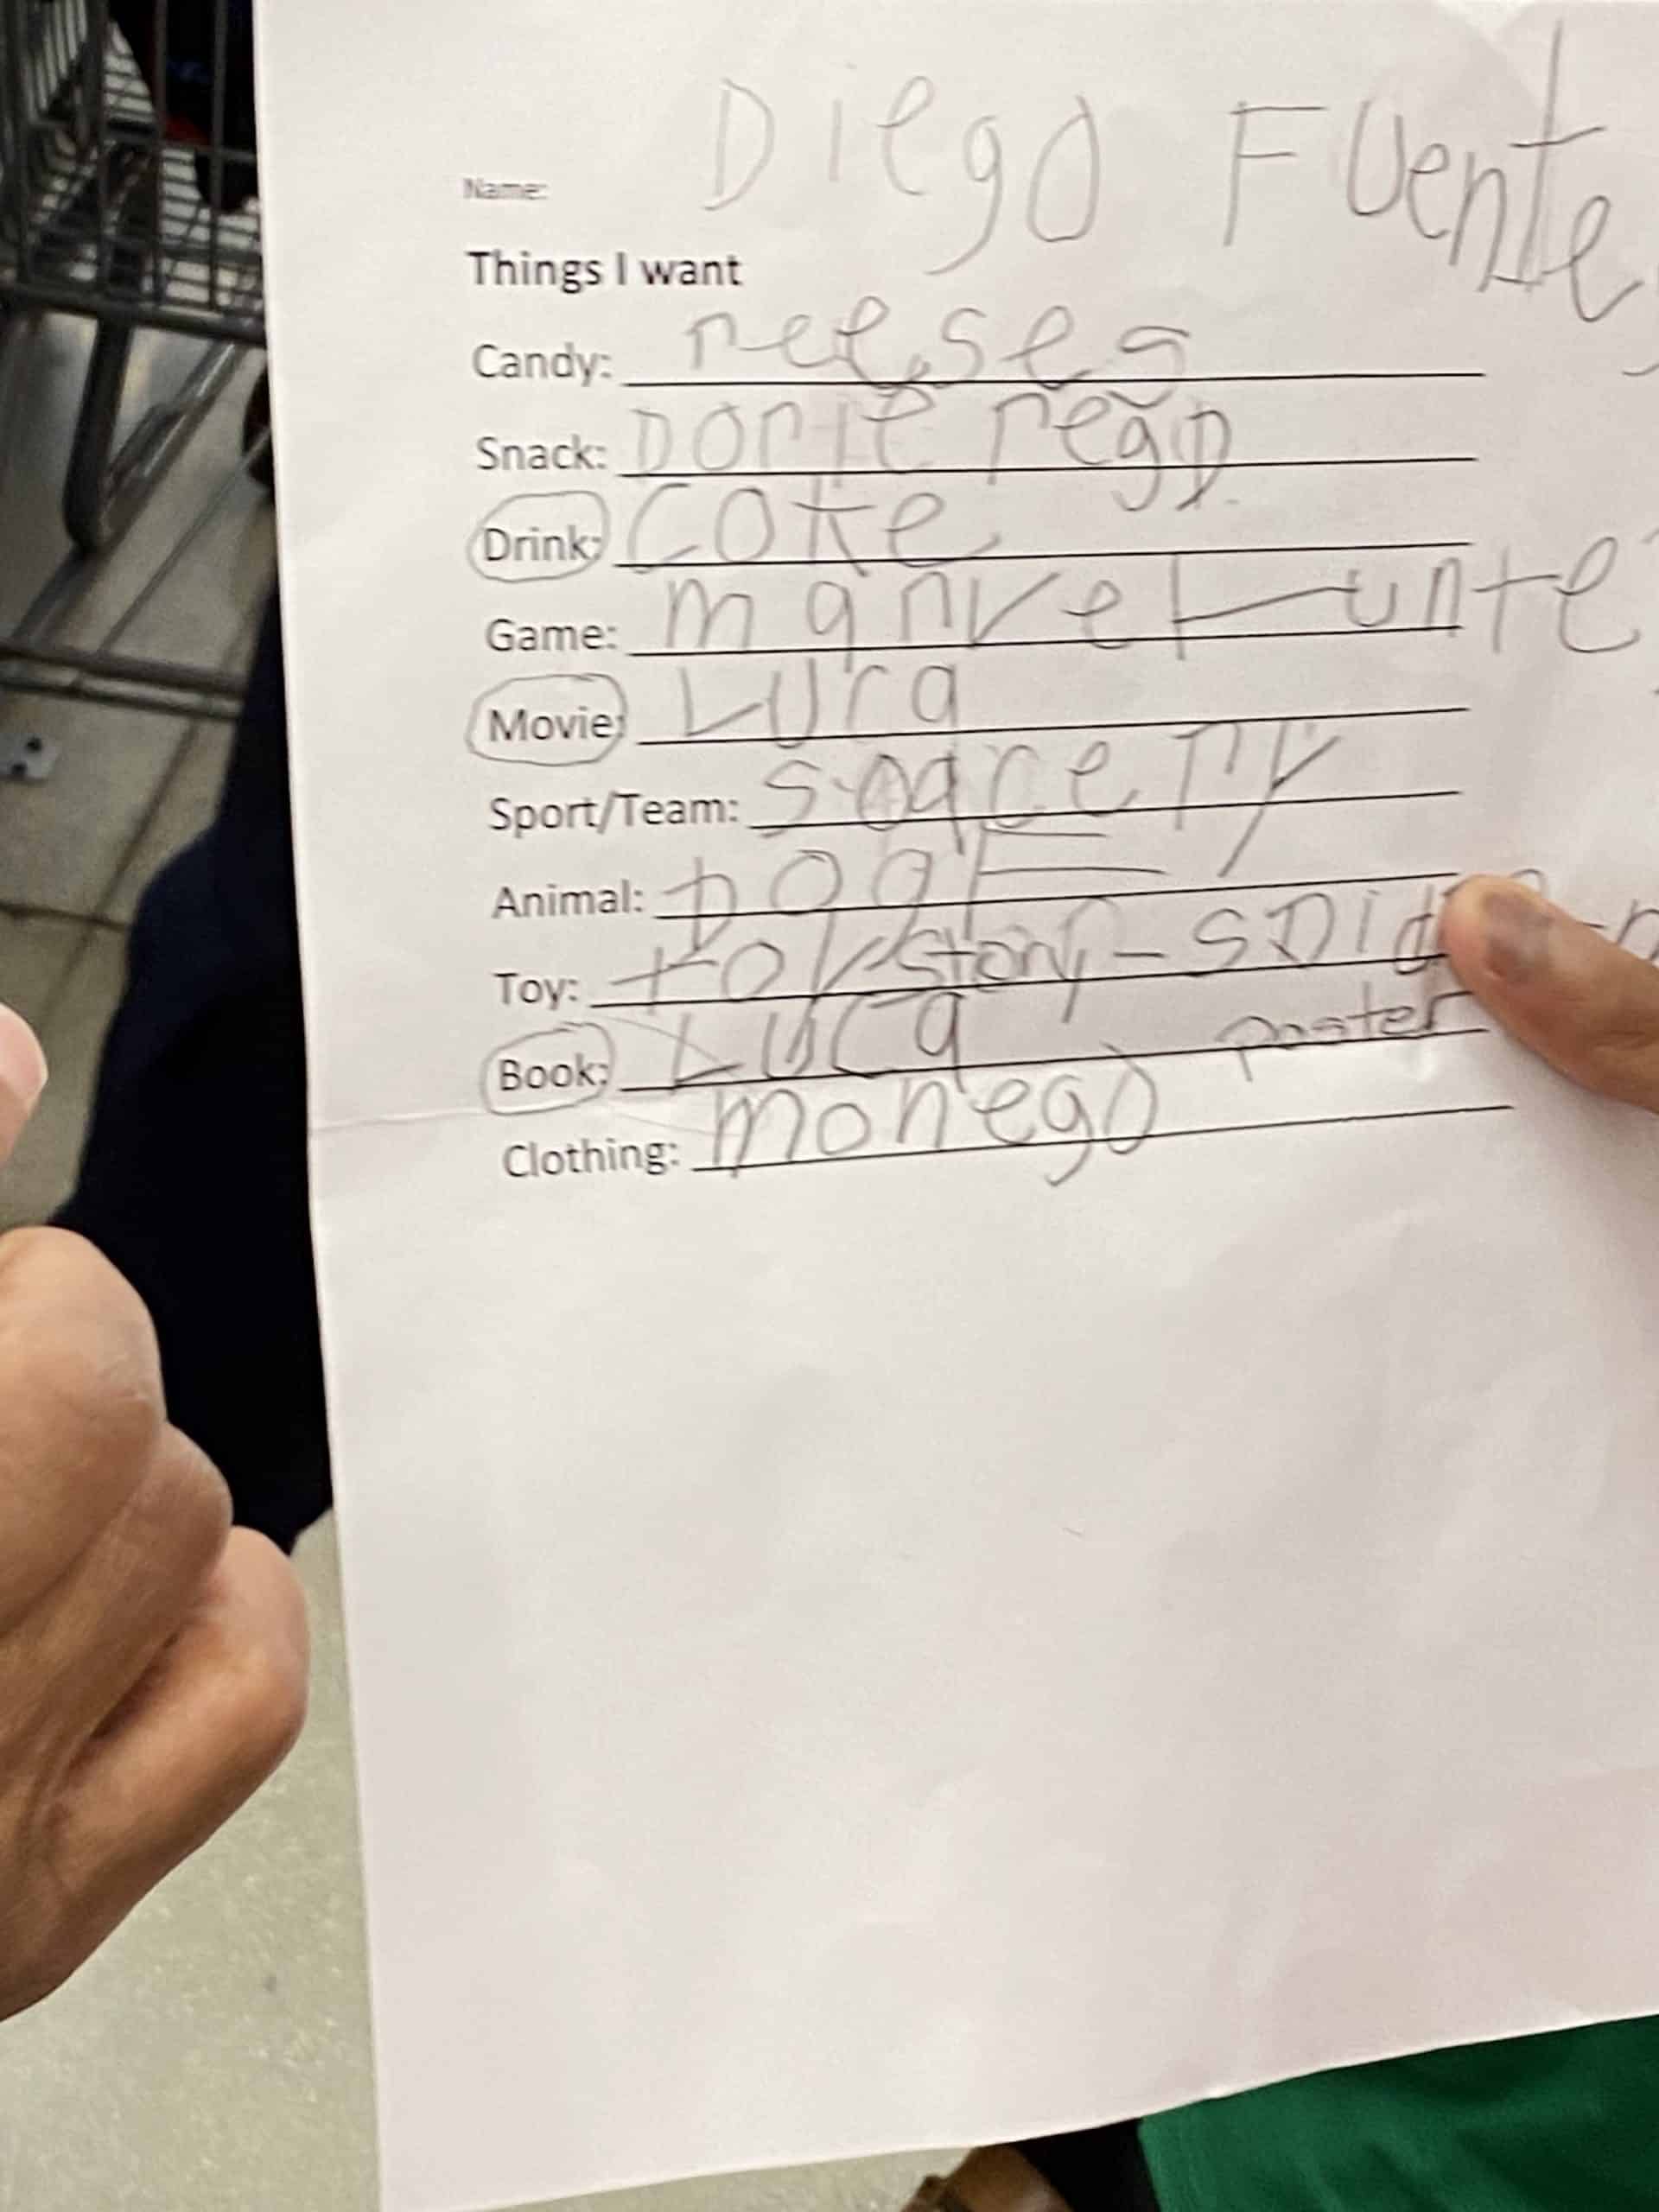 Name: Diego Fuente
Things I want
Candy: reeses
Snack: Dorite
Drink: Coke
Game: marvel unte
Movie: Luca
Sport/Team:
Animal: Dog
Toy: toy story - SPid
Book: Luca poster
Clothing: monego